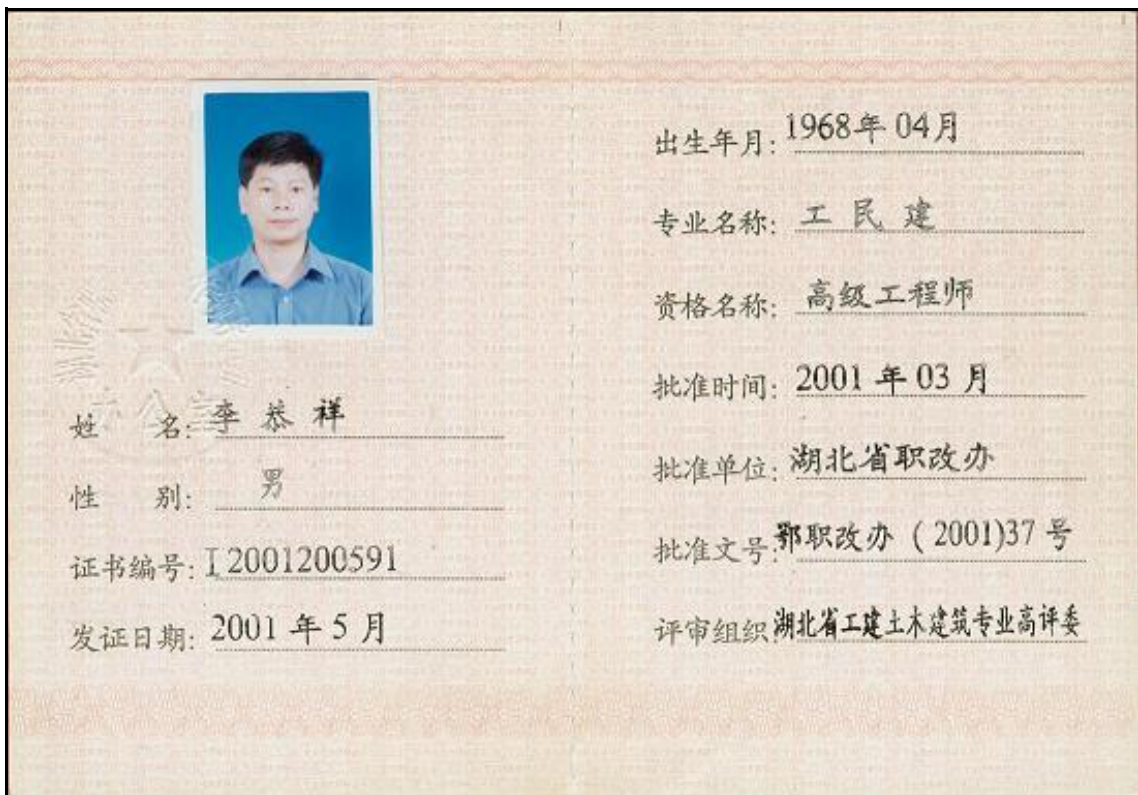 姓 名: 李恭祥
性 别: 男
证书编号: I2001200591
发证日期: 2001年5月
出生年月: 1968年04月
专业名称: 工民建
资格名称: 高级工程师
批准时间: 2001年03月
批准单位: 湖北省职改办
批准文号: 鄂职改办(2001)37号
评审组织 湖北省工建土木建筑专业高评委
办公室